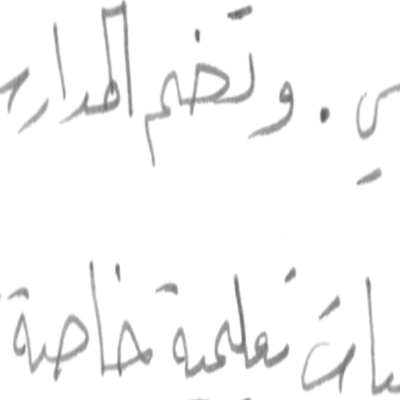 ي . وتضم المدار
ات تعلمية خاصة